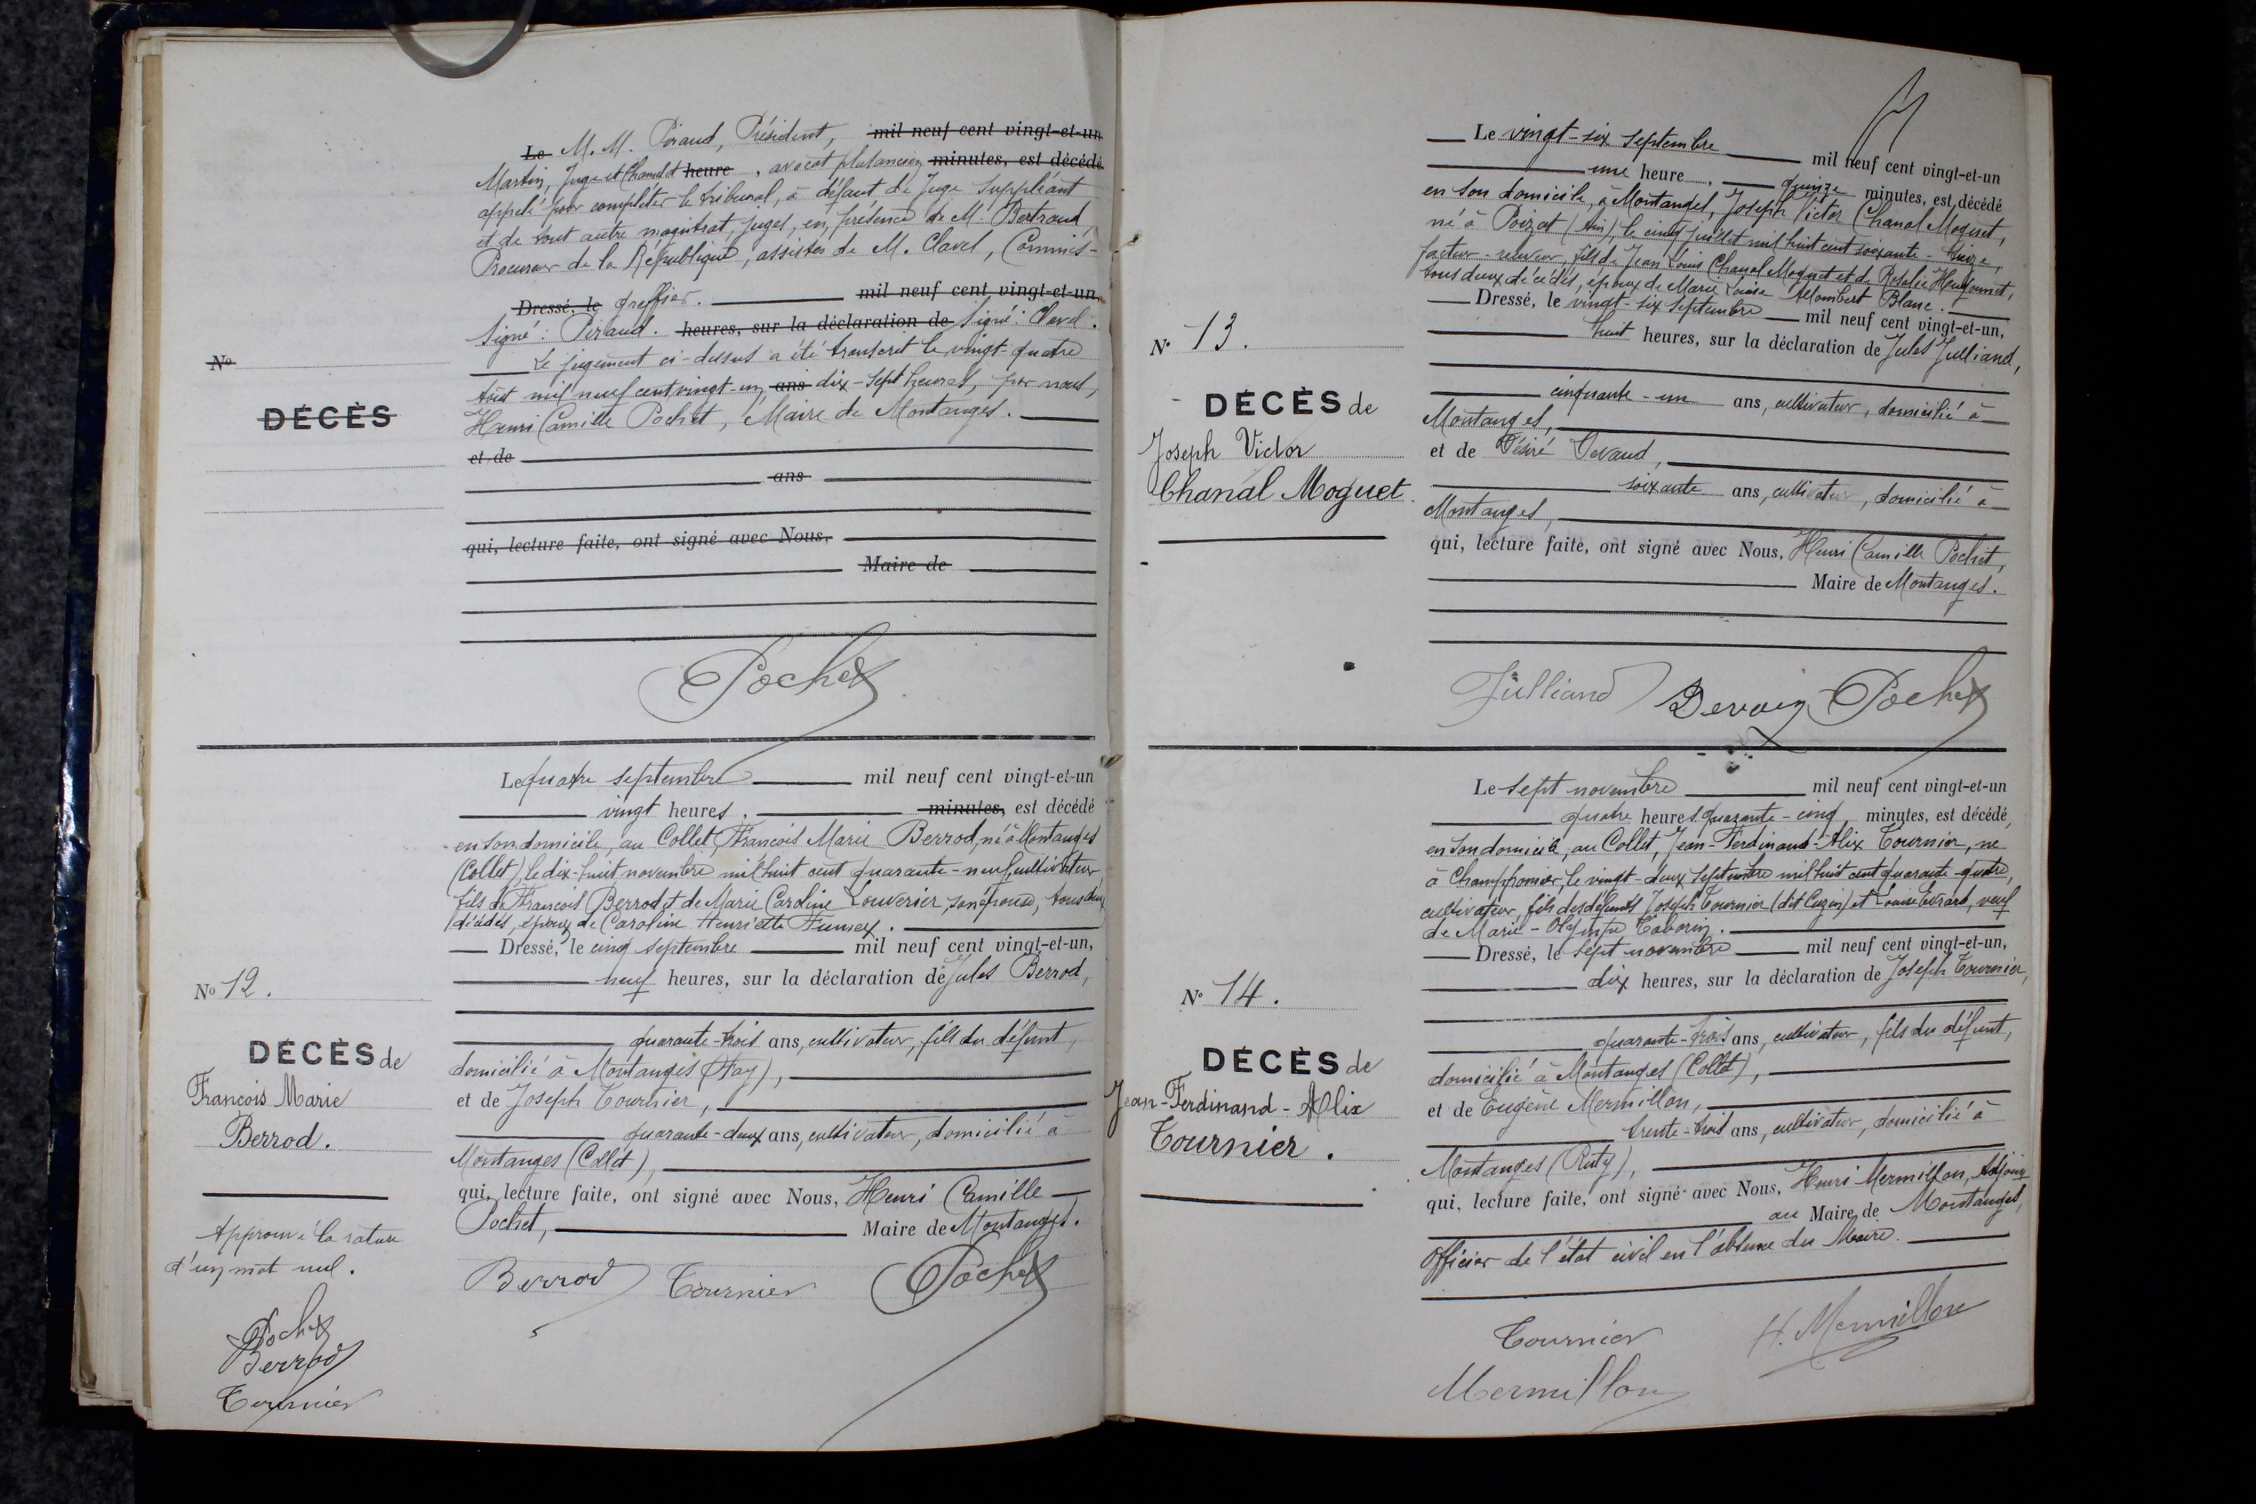 Le M. M. Péraud, Président, mil neuf cent vingt-et-un
Martin, Juge et Chanel heure, avocat plus ancien minutes, est décédé
appelé pour compléter le tribunal, à défaut de Juge suppléant
et de tout autre magistrat, juges, en présence de M. Bertrand
Procureur de la République, assistés de M. Clavel, Commis-
Dressé, le greffier. mil neuf cent vingt-et-un
Signé: Péraud. heures, sur la déclaration de Signé: Clavel.
Le jugement ci-dessus a été transcrit le vingt-quatre
août mil neuf cent vingt-un, ans dix-sept heures, par nous,
Henri Camille Pochet, Maire de Montanges.
et de
ans
qui, lecture faite, ont signé avec Nous,
Maire de
No
DÉCÈS
Pochet
Le quatre septembre mil neuf cent vingt-et-un
vingt heures. minutes, est décédé
en son domicile, au Collet, François Marie Berrod, né à Montanges
(Collet), le dix-huit novembre mil huit cent quarante-neuf, cultivateur,
fils de François Berrod et de Marie Caroline Louvrier, son épouse, tous deux
décédés, époux de Caroline Henriette Fumex.
Dressé, le cinq septembre mil neuf cent vingt-et-un,
neuf heures, sur la déclaration de Jules Berrod,
quarante-trois ans, cultivateur, fils du défunt,
domicilié à Montanges (Fay),
et de Joseph Tournier,
quarante-deux ans, cultivateur, domicilié à
Montanges (Collet),
qui, lecture faite, ont signé avec Nous, Henri Camille
Pochet, Maire de Montanges.
Berrod Tournier Pochet
No 12.
DÉCÈS de
François Marie
Berrod.
Approuvé la rature
d'un mot nul.
Pochet
Berrod
Tournier
Le vingt-six septembre mil neuf cent vingt-et-un
une heure, quinze minutes, est décédé
en son domicile, à Montanges, Joseph Victor Chanal Moquet,
né à Poizat (Ain), le cinq juillet mil huit cent soixante-treize,
facteur-receveur, fils de Jean Louis Chanal Moquet et de Rosalie
tous deux décédés, époux de Marie Louise Alombert Blanc.
Dressé, le vingt-six septembre mil neuf cent vingt-et-un,
huit heures, sur la déclaration de Jules Julliand,
cinquante-un ans, cultivateur, domicilié à
Montanges,
et de Désiré Devaud,
soixante ans, cultivateur, domicilié à
Montanges,
qui, lecture faite, ont signé avec Nous, Henri Camille Pochet,
Maire de Montanges.
Julliand Pochet
No 13.
DÉCÈS de
Joseph Victor
Chanal Moguet
Le sept novembre mil neuf cent vingt-et-un
quatre heures quarante-cinq minutes, est décédé,
en son domicile, au Collet, Jean-Ferdinand-Alix Tournier, né
à Champfromier, le vingt-deux septembre mil huit cent quarante-quatre,
cultivateur, fils des défunts Joseph Tournier (dit Cuzin) et Louise Evrard, veuf
de Marie-Olympe Taborin.
Dressé, le sept novembre mil neuf cent vingt-et-un,
dix heures, sur la déclaration de Joseph Tournier,
quarante-trois ans, cultivateur, fils du défunt,
domicilié à Montanges (Collet),
et de Eugène Mermillon,
trente-trois ans, cultivateur, domicilié à
Montanges (Ruty),
qui, lecture faite, ont signé avec Nous, Henri Mermillon, Adjoint
au Maire de Montanges,
Officier de l'état civil en l'absence du Maire.
Tournier H. Mermillon
Mermillon
No 14.
DÉCÈS de
Jean-Ferdinand-Alix
Tournier.